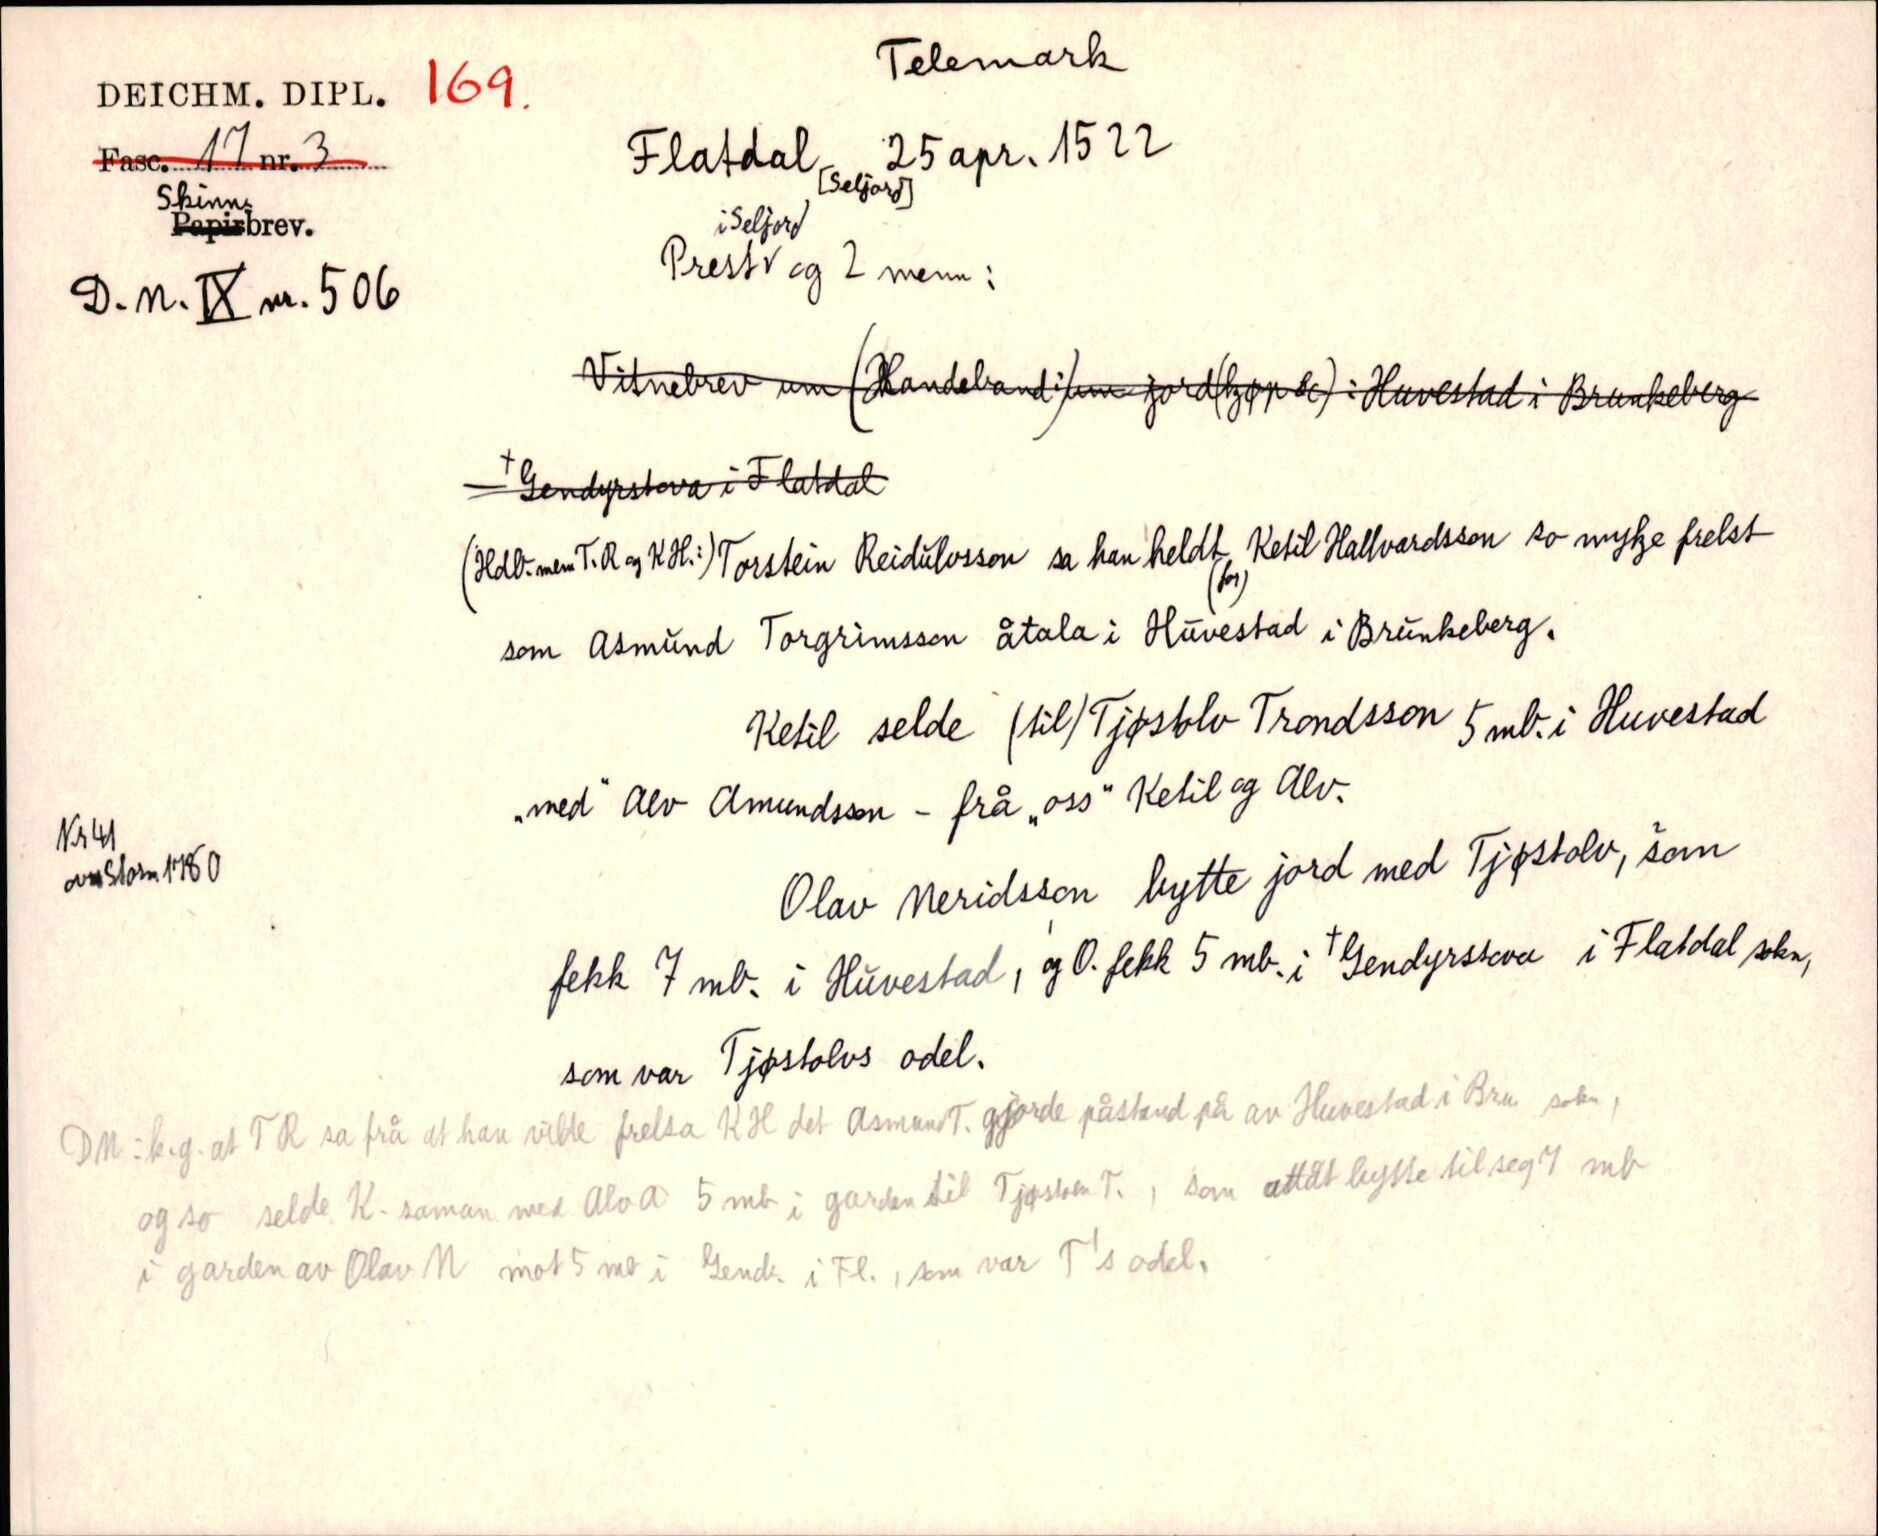 Telemark
DEICHM. DIPL. 169.
Fasc. 17 nr. 3
Flatdal 25 apr. 1522
[Seljord]
Skinn
Papirbrev.
i Seljord
Prest v og 2 menn:
D. N. IX nr. 506
Vitnebrev um (Handebandi) um jord(kjøp &c) i Huvestad i Brunkeberg
— †Gendyrstova i Flatdal
(Hdb. mem T. R og K H.:) Torstein Reidulvsson sa han heldt Ketil Hallvardsson so mykje frelst
(for)
som Asmund Torgrimsson åtala i Huvestad i Brunkeberg.
Ketil selde (til) Tjøstolv Trondsson 5 mb. i Huvestad
„med" Alv Amundsson - frå „oss" Ketil og Alv.
Nr 41
av Storm 1780
Olav Neridsson bytte jord med Tjøstolv, som
fekk 7 mb. i Huvestad, og O. fekk 5 mb. i †Gendyrstova i Flatdal sokn,
som var Tjøstolvs odel.
DN: k.g. at T R sa frå at han vilde frelsa K H det Asmund T. gjorde påstand på av Huvestad i Bru. sokn,
og so selde K. saman med Alv A 5 mb i garden til Tjøstolv T., som attåt bytte til seg 7 mb
i garden av Olav N mot 5 mb i Gend. i Fl., som var T's odel.